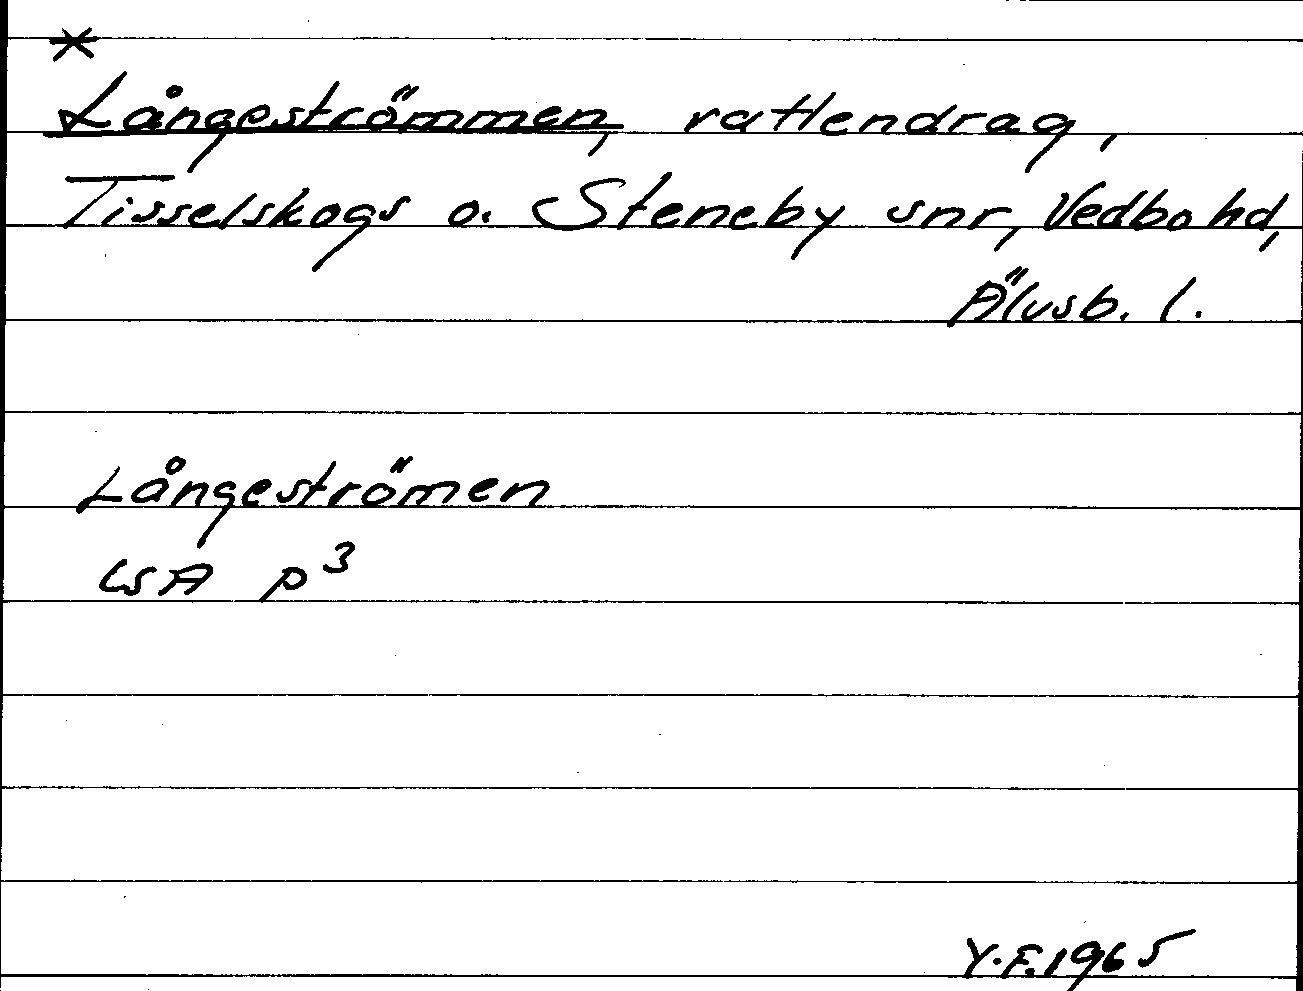 *
Långeströmmen, vattendrag,
Tisselskogs o. Steneby snr, Vedbo hd,
Älvsb. l.
Långeströmen
LSA P³
Y.F. 1965